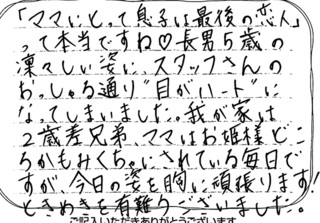 「ママにとって息子は最後の恋人」
って本当ですね♡長男5歳の
凛々しい姿に、スタッフさんの
おっしゃる通り"目がハート"に
なってしまいました。我が家は
2歳差兄弟、ママはお姫様どこ
ろかもみくちゃにされている毎日で
すが、今日の姿を胸に頑張ります!
ときめきを有難うございました。
ご記入いただきありがとうございます